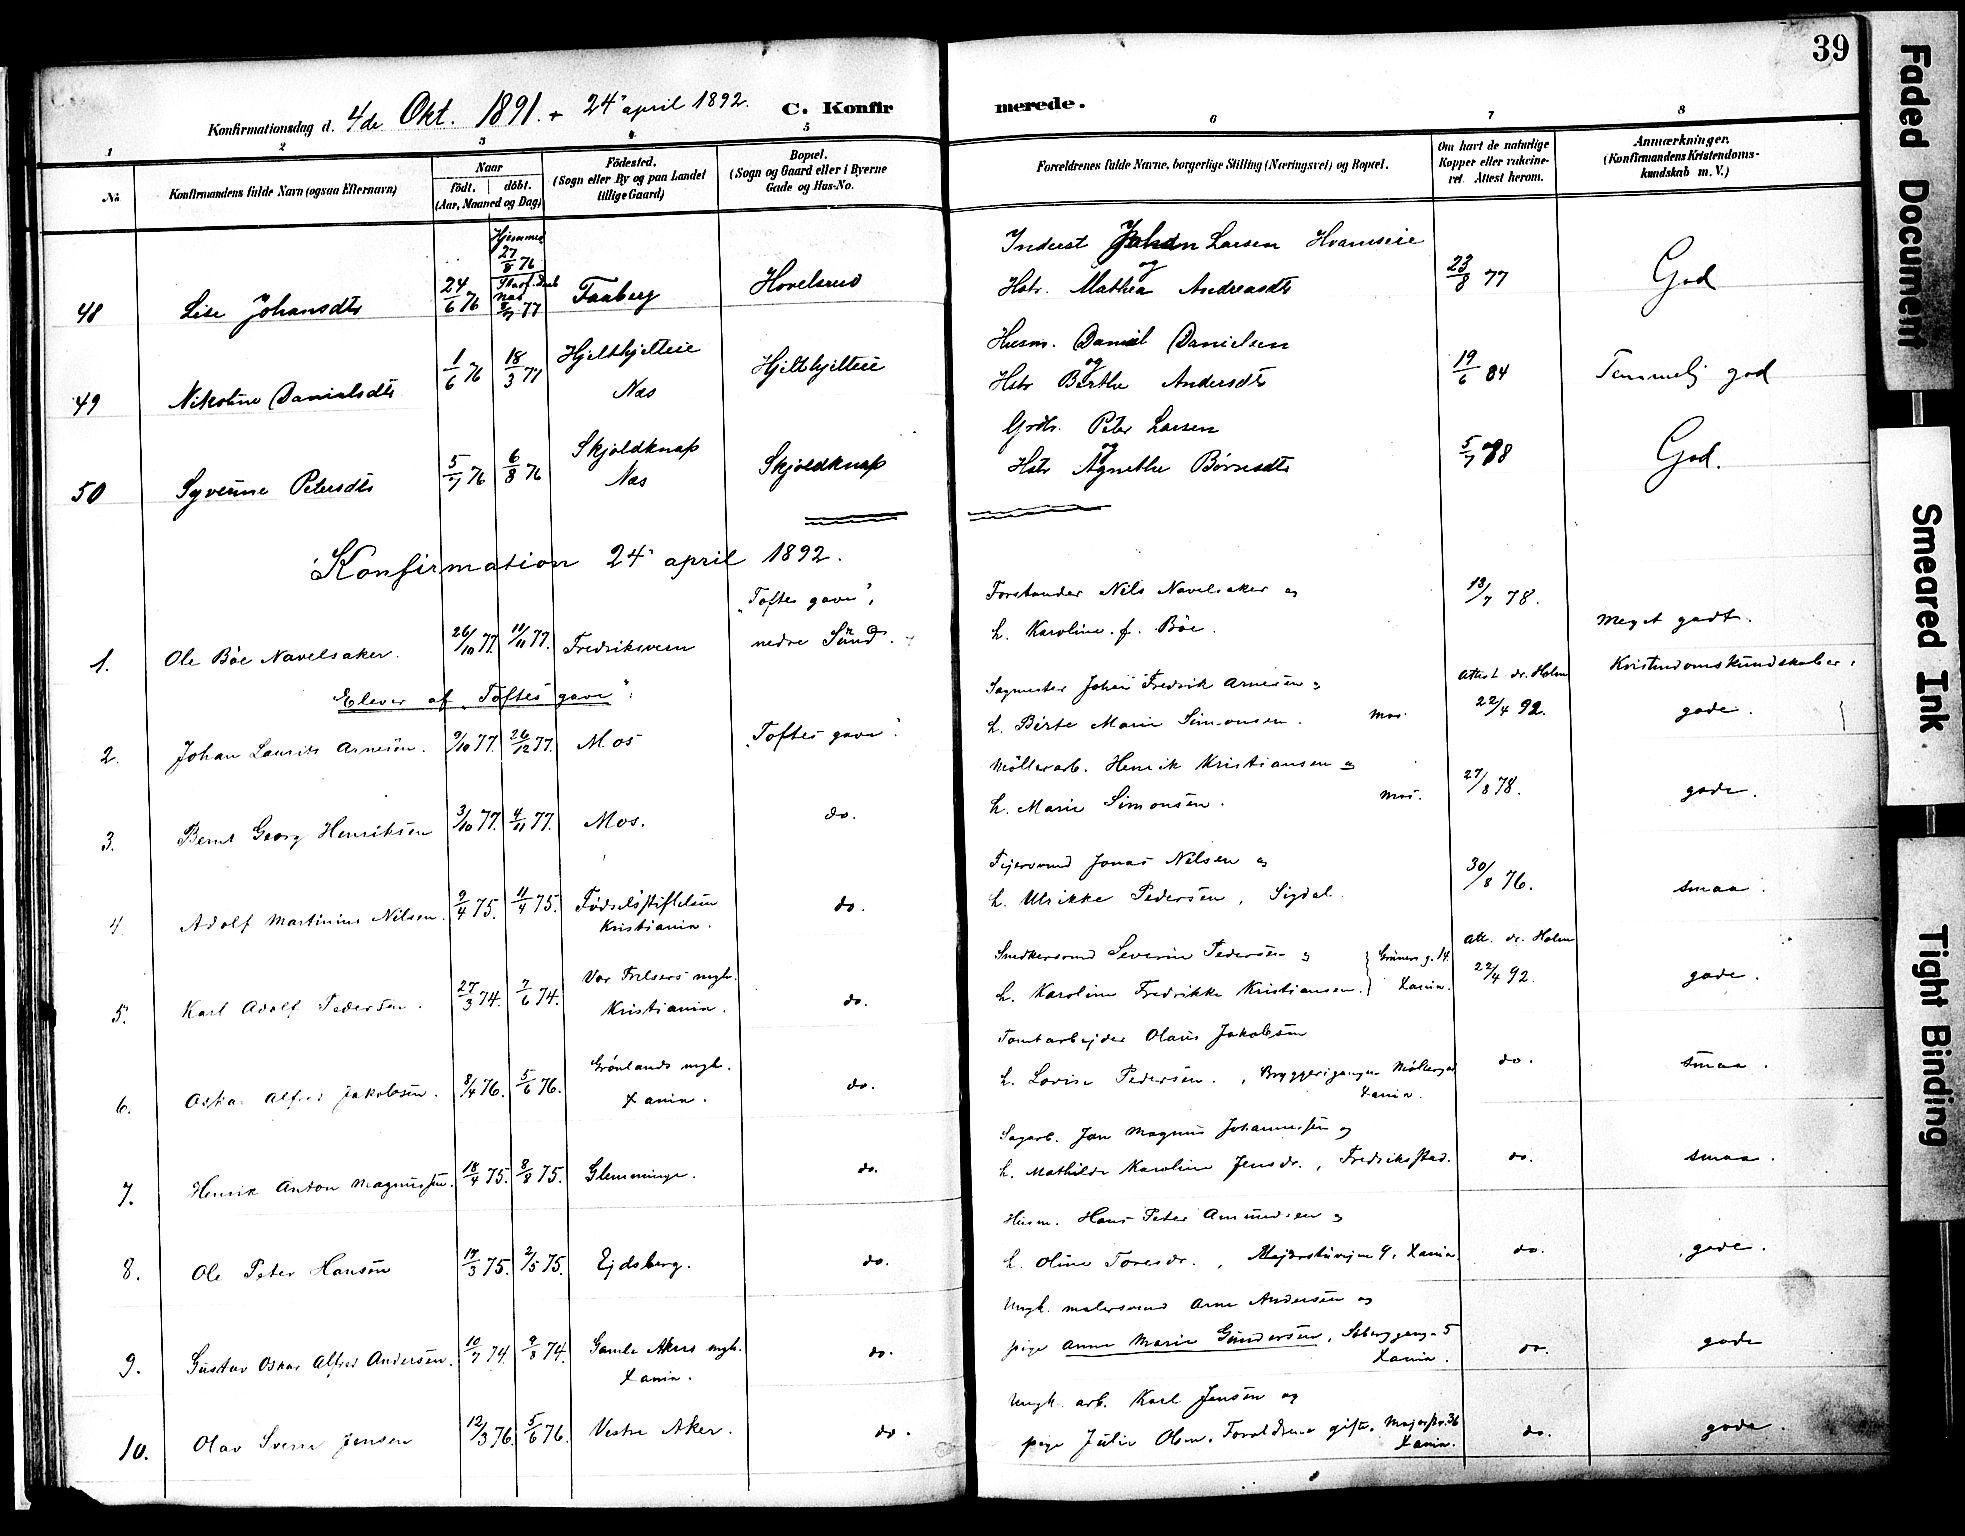 39
Konfirmationsdag d. 4de Okt. 1891. + 24' april 1892.
C. Konfirmerede.
1 2 3 4 5 6 7 8
No.
Konfirmandens fulde Navn (ogsaa Efternavn)
Naar
født. | døbt.
(Aar, Maaned og Dag)
Födested.
(Sogn eller By og paa Landet
tillige Gaard)
Bopæl.
(Sogn og Gaard eller i Byerne
Gade og Hus-No.
Forældrenes fulde Navne, borgerlige Stilling (Næringsvei) og Bopæl.
Om havt de naturlige
Kopper eller vakcine-
ret Attest herom.
Anmærkninger.
(Konfirmandens Kristendoms-
kundskab m. V.)
48 Lise Johansdtr 24/6 76 Hjemmed 27/8 76 Faaberg Hovelsrud
Inderst Johan Larsen Hvamseie
og
Hstr. Mathea Andreasdtr 23/8 77 God
49 Nikoline Danielsdtr 1/6 76 18/3 77 Hjelthjelteie
Næs
Hjelthjelteie
Husm. Daniel Danielsen
og
Hstr Berthe Andersdtr 19/6 84 Temmelig god
50 Syverine Petersdtr 5/7 76 6/8 76 Skjoldknap
Næs
Skjoldknap
Grdbr. Peter Larsen
og
Hstr Agnethe Børresdtr 5/7 78 God.
Konfirmation 24' april 1892.
1. Ole Böe Navelsaker. 26/10 77. 11/11 77. Fredriksvern
"Toftes gave",
nedre Sund.
Forstander Nils Navelsaker og
h. Karoline f. Böe. 13/7 78. Meget godt.
Kristendomskundskaber:
Elever af "Toftes gave":
2. Johan Laurits Arnesen. 9/10 77. 26/12 77. Mos "Toftes gave".
Sagmester Johan Fredrik Arnesen og
h. Birte Marie Simonsen. Mos.
Attest dr. Holm
22/4 92. gode.
3. Bernt Georg Henriksen 3/10 77. 4/11 77. Mos. do.
Möllerarb. Henrik Kristiansen og
h. Marie Simonsen. Mos. 27/8 78. gode.
4. Adolf Martinius Nilsen. 9/4 75. 11/4 75. Födselsstiftelsen
Kristiania. do.
Fejersvend Jonas Nilsen og
h. Ulrikke Pedersen, Sigdal. 30/8 76. smaa.
5. Karl Adolf Pedersen. 27/3 74. 7/6 74. Vor Frelsers mgh.
Kristiania. do.
Snedkersvend Severin Pedersen og
h. Karoline Fredrikke Kristiansen. } Grüners g. 14.
Xania.
Att. dr. Holm
22/4 92. gode.
6. Oskar Alfred Jakobsen. 8/4 76. 5/6 76. Grönlands mgh.
Xania. do.
Tomtarbejder Olaus Jakobsen
h. Lovise Pedersen., Bryggerigangen Möllergad
Xania. do. smaa.
7. Henrik Anton Magnussen. 18/4 75. 8/8 75. Glemminge. do.
Sagarb. Jan Magnus Johannessen og
h. Mathilde Karoline Jensdr., Fredriksstad. do. smaa.
8. Ole Peter Hansen 17/3 75. 2/5 75. Ejdsberg. do.
Husm. Hans Peter Amundsen og
h. Oline Toresdr., Mejerstuvejen 9, Xania. do. gode.
9. Gustav Oskar Alfred Andersen. 10/7 74. 9/8 74. Gamle Akers mgh.
Xania. do.
Ungk. malersvend Arne Andersen og
pige Anne Marie Gundersen, 5
Xania. do. gode
10. Olav Sverre Jensen 12/3 76. 5/6 76. Vestre Aker. do.
Ungk. arb. Karl Jensen og
pige Julie Olsen. Forældrene gifte, Majorstv. 36
Xania. do. gode.
Faded Document
Smeared Ink
Tight Binding